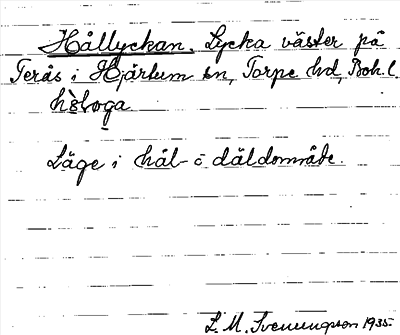 Hållyckan. Lycka väster på
Terås i Hjärtum sn, Torpe hd, Boh. l.
Läge i hål- o. däldområde.
L. M. Svenungsson 1935.